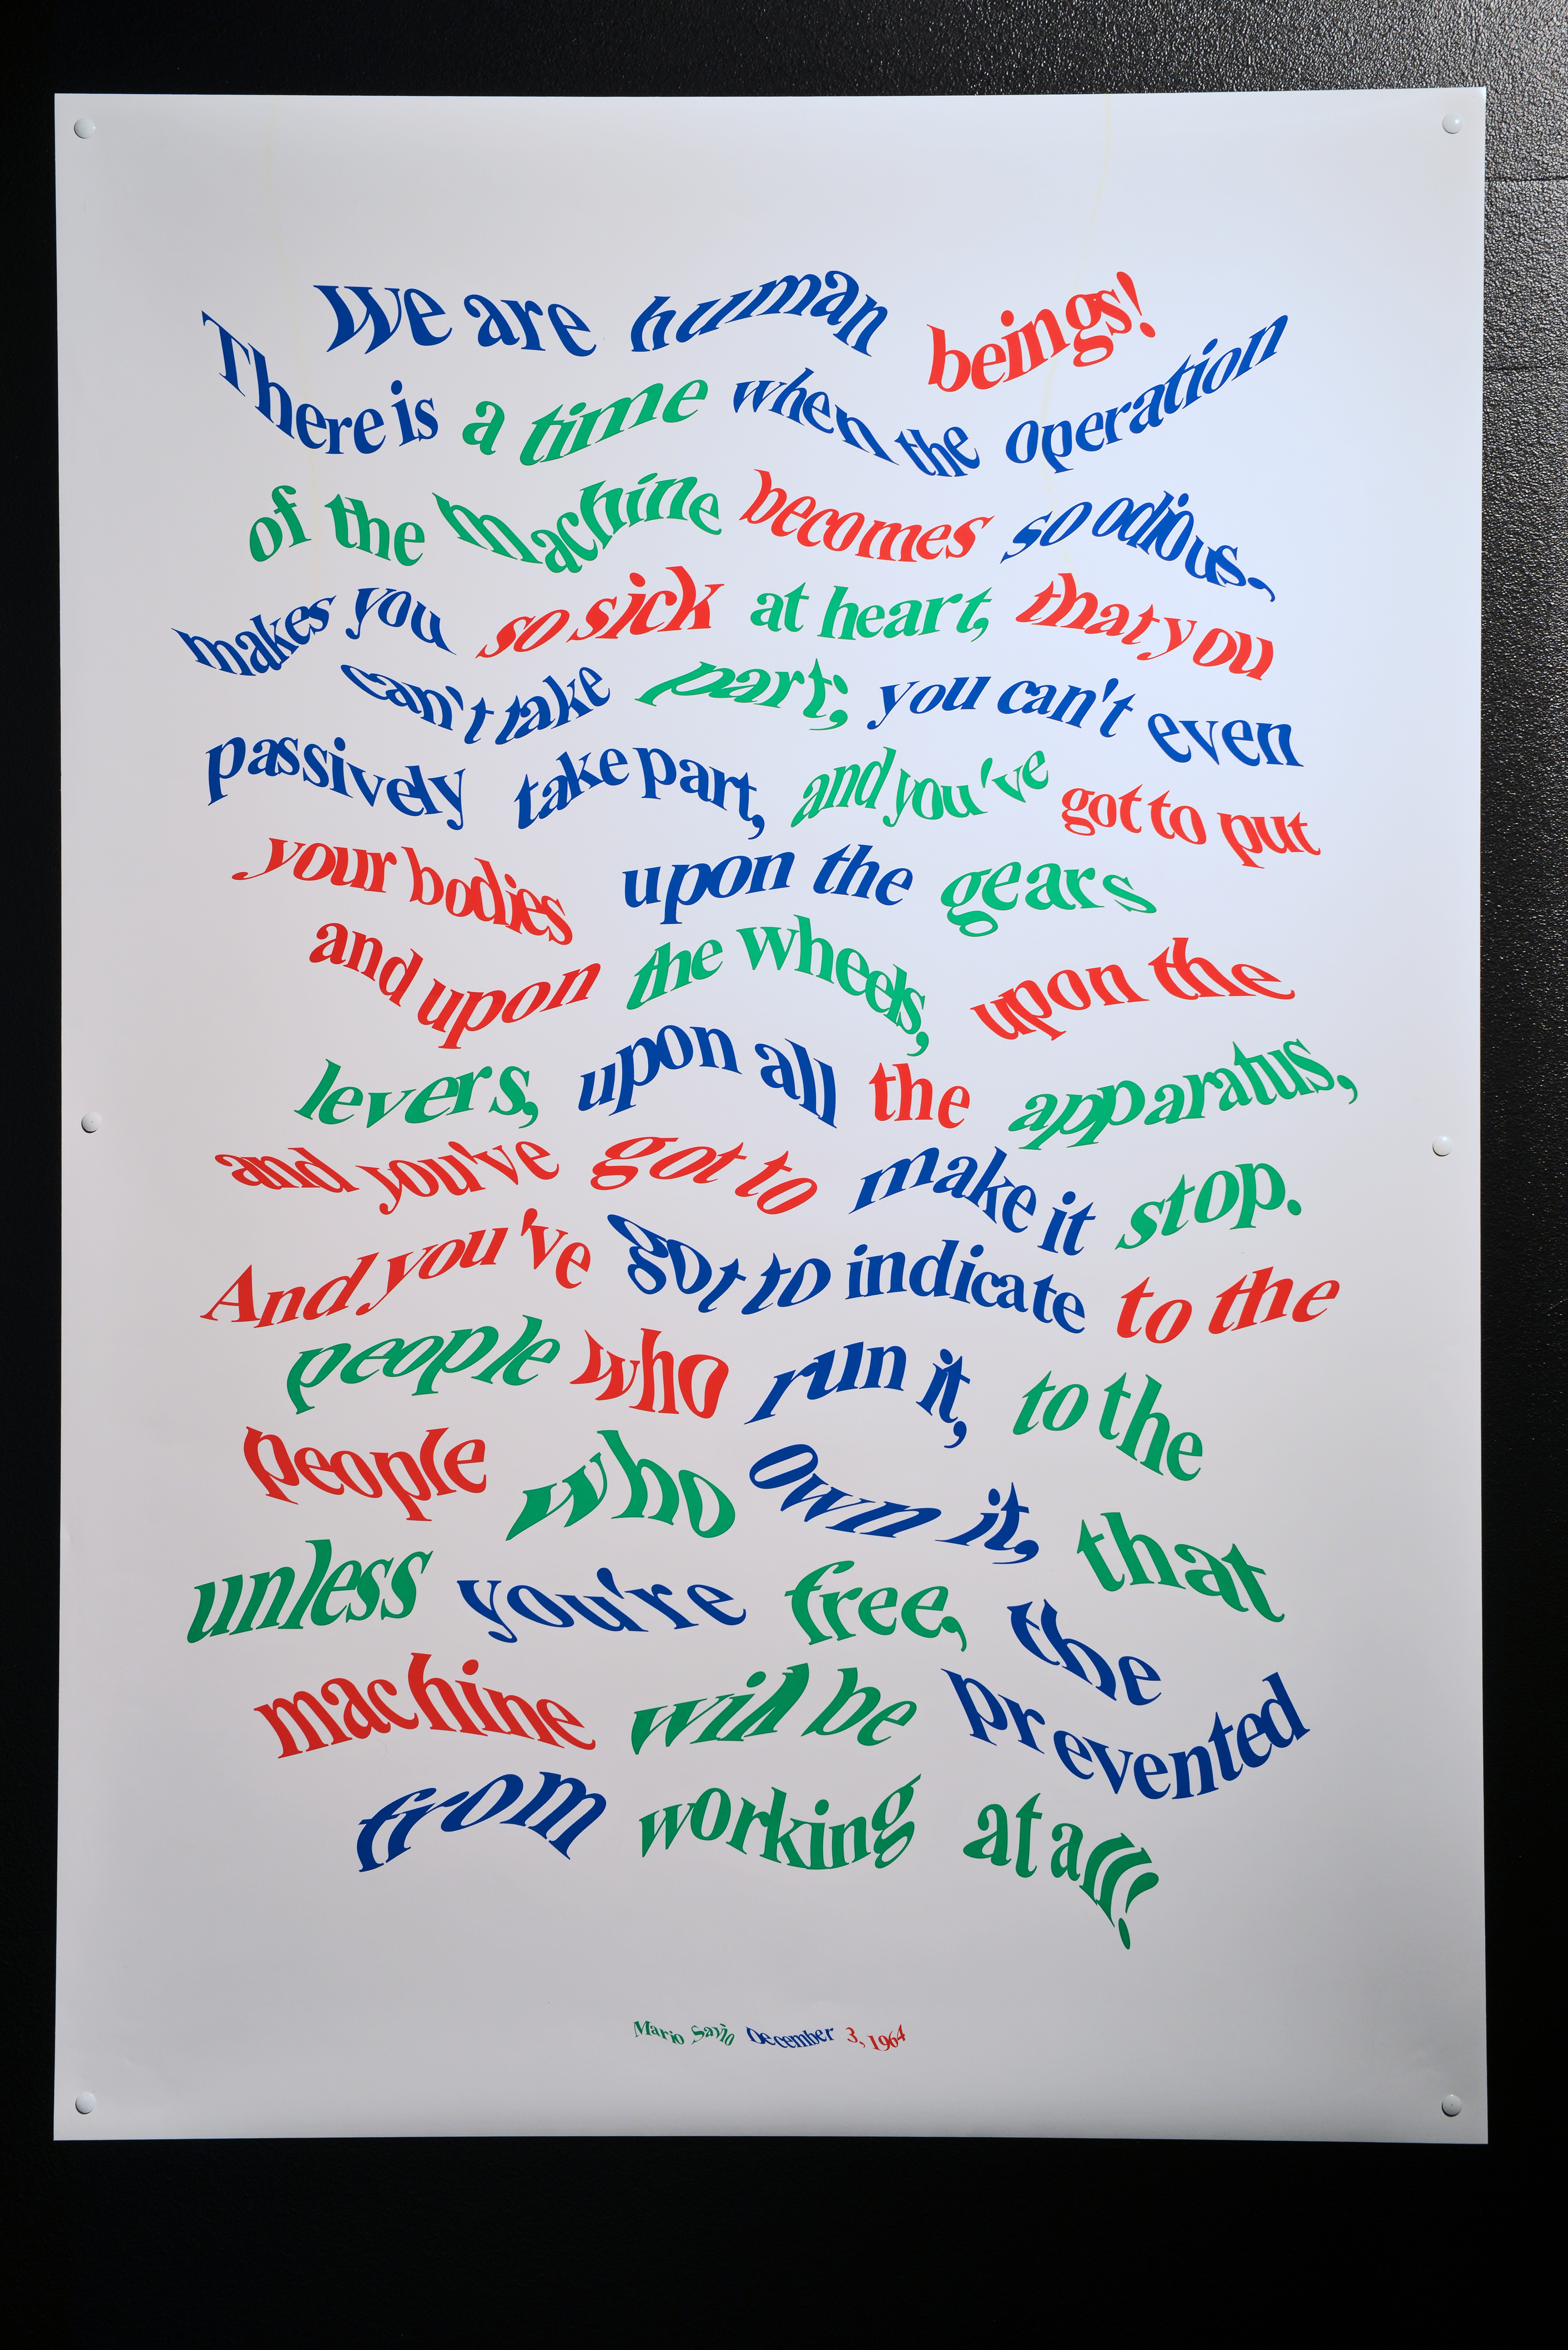 We are human beings!
There is a time when the operation
of the machine becomes so odious,
makes you so sick at heart, that you
can't take part; you can't even
passively take part, and you've got to put
your bodies upon the gears
and upon the wheels, upon the
levers, upon all the apparatus,
and you've got to make it stop.
And you've got to indicate to the
people who run it, to the
people who own it, that
unless you're free, the
machine will be prevented
from working at all!
Mario Savio December 3, 1964